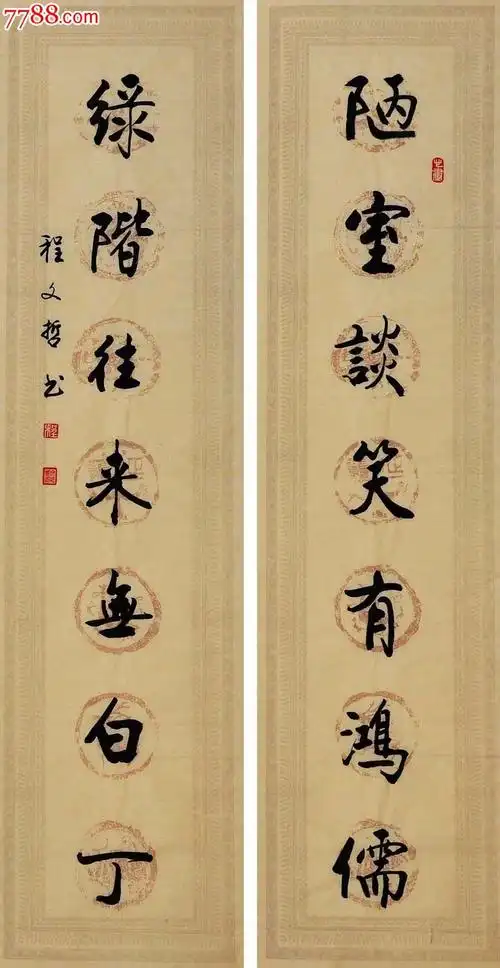 7788.com
陋室談笑有鴻儒
綠階往来無白丁
程文哲书